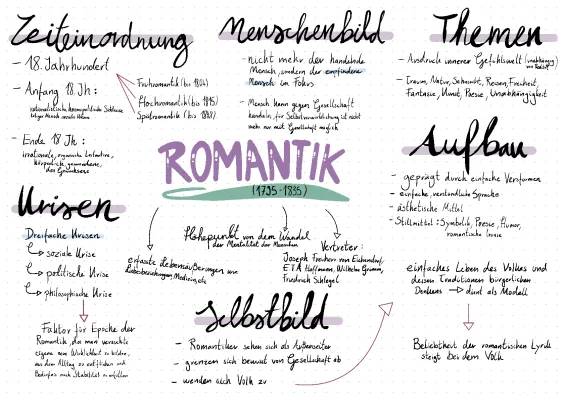 Zeiteinordnung
- 18. Jahrhundert
Frühromantik (bis 1804)
Hochromantik (bis 1815)
Spätromantik (bis 1848)
- Anfang 18. Jh:
- Ende 18 Jh:
irrationale, organische
Menschenbild
- nicht mehr der handelnde
Mensch, sondern der empfindene
Mensch im Fokus
- Mensch kann gegen Gesellschaft
handeln, für Selbstverwirklichung ist nicht
mehr nur mit Gesellschaft möglich
Themen
- Ausdruck innerer Gefühlswelt (unabhängig
- Traum, Natur, Sehnsucht, Reisen, Freiheit,
Fantasie, Kunst, Poesie, Unabhängigkeit
ROMANTIK
(1795-1835)
Höhepunkt von dem Wandel
der Mentalität der Menschen
erfasste Lebensäußerungen wie
Vertreter:
Joseph Freiherr von Eichendorf,
E T A Hoffmann, Wilhelm Grimm,
Friedrich Schlegel
Aufbau
- geprägt durch einfache Versformen
- einfache, verständliche Sprache
- ästhetische Mittel
- Stilmittel: Symbolik, Poesie, Humor,
romantische Ironie
einfaches Leben des Volkes und
dessen Traditionen bürgerlichen
Denkens → dient als Modell
Beliebtheit der romantischen Lyrik
steigt bei dem Volk
Krisen
Dreifache Krisen
soziale Krise
politische Krise
philosophische Krise
Faktor für Epoche der
Romantik, da man versuchte
eigene neue Wirklichkeit zu bilden,
aus dem Alltag zu entfliehen und
Bedürfnis nach Stabilität zu erfüllen
Selbstbild
- Romantiker sehen sich als Außenseiter
- grenzen sich bewusst von Gesellschaft ab
- wenden sich Volk zu